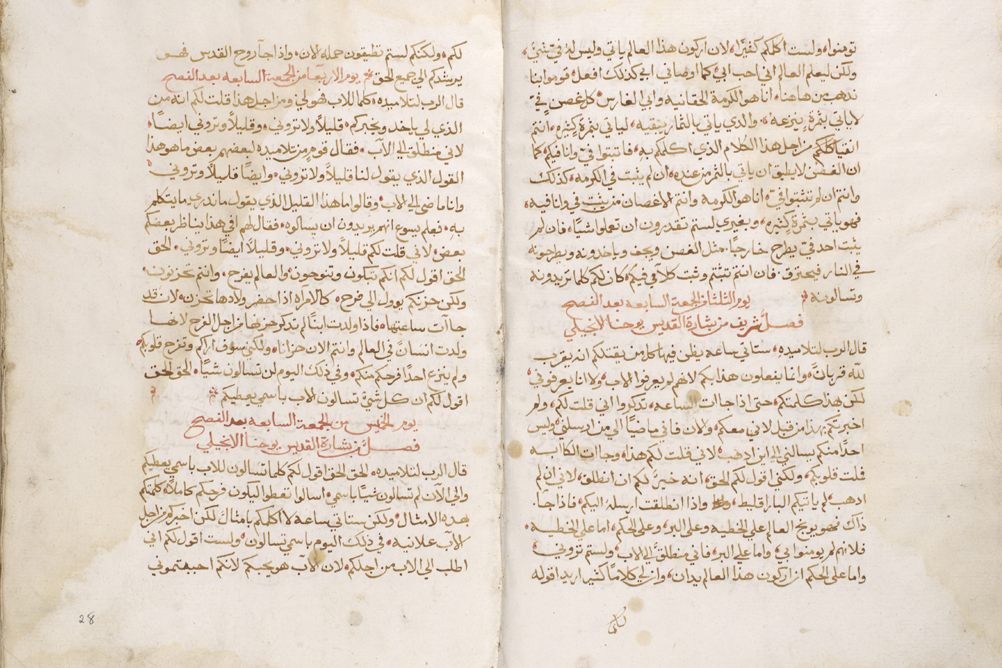 تومنوا ولست اكلمكم كثيرًا لان اركون هذا العالم ياتي وليس له في شيئ
ولكن ليعلم العالم اني احب ابي كما اوصاني ابي كذلك افعل قوموا بنا
نذهب من هاهنا انا هو الكرمة الحقانية وابي الغارس كل غصن فيّ
لا ياتي بثمرة ينزعه والذي ياتي بالثمار ينقيه لياتي بثمرة كثيره انتم
انقيا كلكم من اجل هذا الكلام الذي اكلمكم به فاثبتوا فيّ وانا فيكم كما
ان الغصن لا يطيق ان ياتي بالثمر من عنده ان لم يثبت في الكرمه كذلك
وانتم ان لم تثبتوا فيّ انا هو الكرمة وانتم الاغصان من يثبت في وانا فيه
فهو ياتي بثمرة كثيره وبغيري لستم تقدرون ان تعملوا شيًا فان لم
يثبت احد فيّ يطرح خارجًا مثل الغصن ويجف وياخدونه ويطرحونه
في النار فيحترق فان انتم ثبتم فيّ وثبت كلامي فيكم كان لكم كلما تريدونه
وتسالونه يوم الثلثا من الجمعة السابعه بعد الفصح
فصل شريف من بشارة القديس يوحنا الانجيلي
قال الرب لتلاميذه ستاتي ساعه يظن فيها كل من يقتلكم انه يقرب
لله قربانًا وانما يفعلون هذا بكم لانهم لم يعرفوا الاب ولا انا يعرفوني
لكن هذا كلمتكم حتى اذا جاات الساعه تذكروا اني قلت لكم ولم
اخبرتكم بهذا من قبل لاني معكم والان فاني ماضيًا الي من ارسلني وليس
احدًا منكم يسالني الي اين اذهب لاني قلت لكم هذا وجاات الكابه
قلت قلوبكم ولكني اقول لكم الحق انه خير لكم ان انطلق لاني ان لم
اذهب لم ياتيكم البارقليط واذا انطلقت ارسله اليكم فاذا جا
ذاك فهو يوبخ العالم علي الخطية وعلي البر وعلي الحكم اما علي الخطية
فلانهم لم يومنوا بي واما علي البر فاني منطلق الي الاب ولستم تروني
واما علي الحكم ان اركون هذا العالم يدان وان لي كلامًا كثير اريد اقوله
لكم
لكم ولكنكم لستم تطيقون حمله الان واذا جا روح القدس فهو
يرشدكم الي جميع الحق يوم الاربعا من الجمعة السابعه بعد الفصح
قال الرب لتلاميذه كلما للاب فهو لي ومن اجل هذا قلت لكم انه من
الذي لي ياخد ويخبركم قليلًا ولا تروني وقليلًا وتروني ايضًا
لاني منطلق الي الاب فقال قوم من تلاميذه لبعضهم بعض ما هو هذا
القول الذي يقول لنا قليلًا ولا تروني وايضًا قليلًا وتروني
وانا ماضي الي الاب وقالوا ما هذا القليل الذي يقول ما ندري ما يتكلم
به فعلم يسوع انهم يريدون ان يسالوه فقال لهم افي هذا يناظر بعضكم
بعض لاني قلت لكم قليلًا ولا تروني وقليلًا ايضًا وتروني الحق
الحق اقول لكم انكم تبكون وتنوحون والعالم يفرح وانتم تحزنون
ولكن حزنكم يوول الي فرح كالامراه اذا حضر ولادها تحزن لان قد
جاات ساعتها فاذا ولدت ابنًا لم تذكر حزنها من اجل الفرح لانها
ولدت انسانًا في العالم وانتم الان حزانا ولكن سوف اراكم وتفرح قلوبكم
ولم ينزع احدًا فرحكم منكم وفي ذلك اليوم لن تسالون شيًا الحق الحق
اقول لكم ان كل شي تسالون الاب باسمي يعطيكم
يوم الخميس من الجمعة السابعه بعد الفصح
فصل من بشارة القديس يوحنا الانجيلي
قال الرب لتلاميذه الحق الحق اقول لكم كلما تسالون للاب باسمي يعطيكم
والي الان لم تسالون شيًا باسمي اسالوا تعطوا ليكون فرحكم كاملًا كلمتكم
بهذه الامثال ولكن ستاتي ساعة لا اكلمكم بامثال لكن اخبركم من اجل
الاب علانيه في ذلك اليوم باسمي تسالون ولست اقول لكم اني
اطلب الي الاب من اجلكم لان الاب هو يحبكم لانكم احببتموني
28